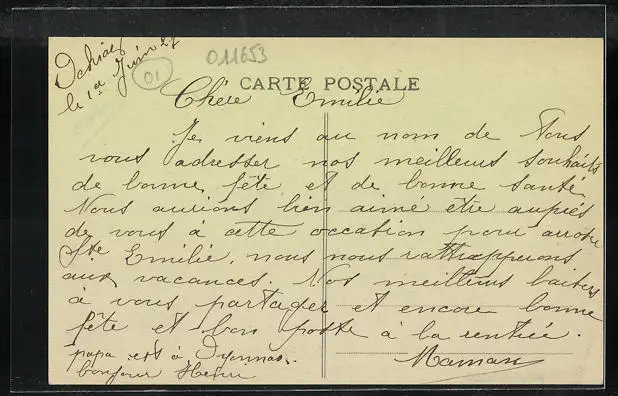 le 1er Juin 27
011653
01
CARTE POSTALE
Chère Emilie
Je viens au nom de Tous
vous adresser nos meilleurs souhaits
de bonne fête et de bonne santé
Nous aurions bien aimé être auprès
de vous à cette occation pour arroser
Ste Emilie, nous nous rattrapperons
aux vacances. Nos meilleurs baisers
à vous partager et encore bonne
fête et bon poste à la rentrée.
papa est à Oyonnax.
Maman
bonjour Henri